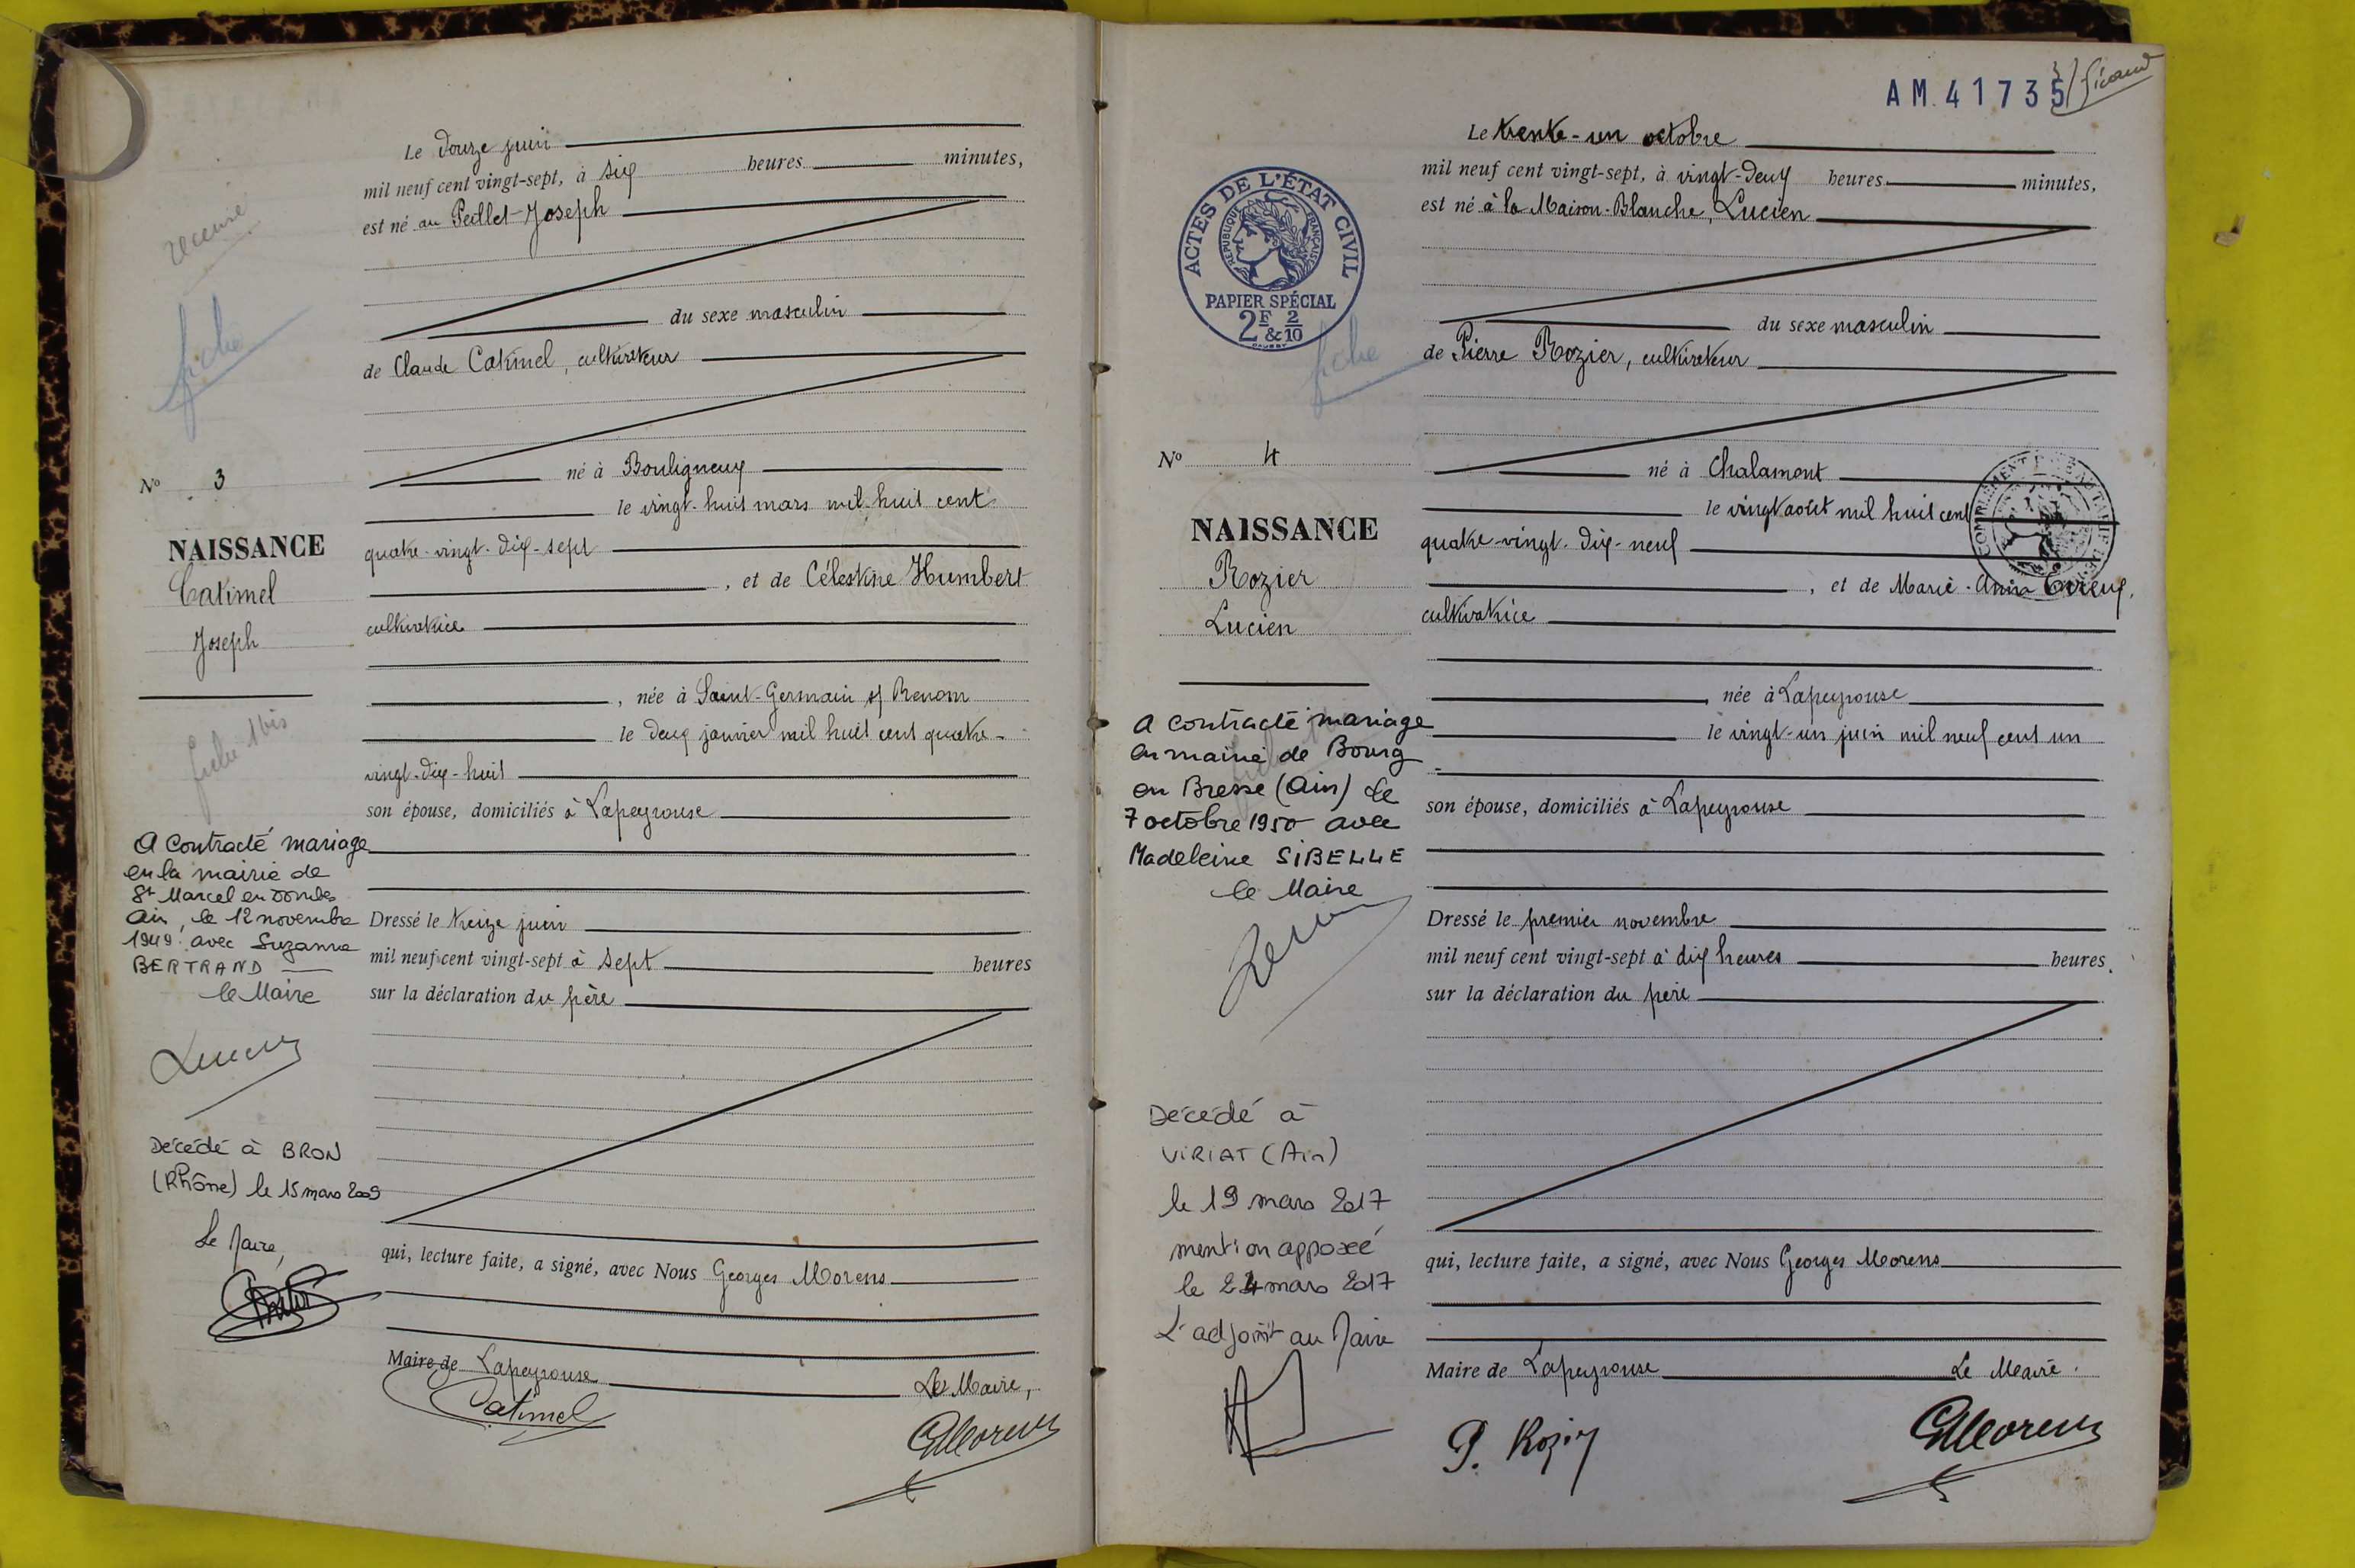 recensé
fiche
Le douze juin
mil neuf cent vingt-sept, à six heures minutes,
est né au Peillet Joseph
du sexe masculin
de Claude Catimel, cultivateur
né à Bouligneux
le vingt-huit mars mil huit cent
quatre-vingt-dix-sept
, et de Célestine Humbert
cultivatrice
, née à Saint-Germain s/ Renom
le deux janvier mil huit cent quatre-
vingt-dix-huit
son épouse, domiciliés à Lapeyrouse
Dressé le treize juin
mil neuf cent vingt-sept à sept heures
sur la déclaration du père
qui, lecture faite, a signé, avec Nous Georges Morens
Maire de Lapeyrouse Le Maire,
Catimel
GMorens
No 3
NAISSANCE
Catimel
Joseph
fiche 1 bis
A contracté mariage
en la mairie de
St Marcel en Dombes
Ain, le 12 novembre
1949 avec Suzanne
BERTRAND
le Maire
Décédé à BRON
(Rhône) le 15 mars 2009
Le Maire,
AM.41735
ACTES DE L'ÉTAT CIVIL
RÉPUBLIQUE FRANÇAISE
PAPIER SPÉCIAL
2F & 2/10
fiche
Le trente-un octobre
mil neuf cent vingt-sept, à vingt-deux heures minutes,
est né à la Maison-Blanche, Lucien
du sexe masculin
de Pierre Rozier, cultivateur
né à Chalamont
le vingt août mil huit cent
quatre-vingt-dix-neuf
, et de Marie-Anna
cultivatrice
née à Lapeyrouse
le vingt-un juin mil neuf cent un
son épouse, domiciliés à Lapeyrouse
Dressé le premier novembre
mil neuf cent vingt-sept à dix heures heures
sur la déclaration du père
qui, lecture faite, a signé, avec Nous Georges Morens
Maire de Lapeyrouse Le Maire
P. Rozier
GMorens
No 4
NAISSANCE
Rozier
Lucien
A contracté mariage
en mairie de Bourg
en Bresse (Ain) le
7 octobre 1950 avec
Madeleine SIBELLE
le Maire
Décédé à
VIRIAT (Ain)
le 19 mars 2017
mention apposée
le 24 mars 2017
L'adjoint au Maire